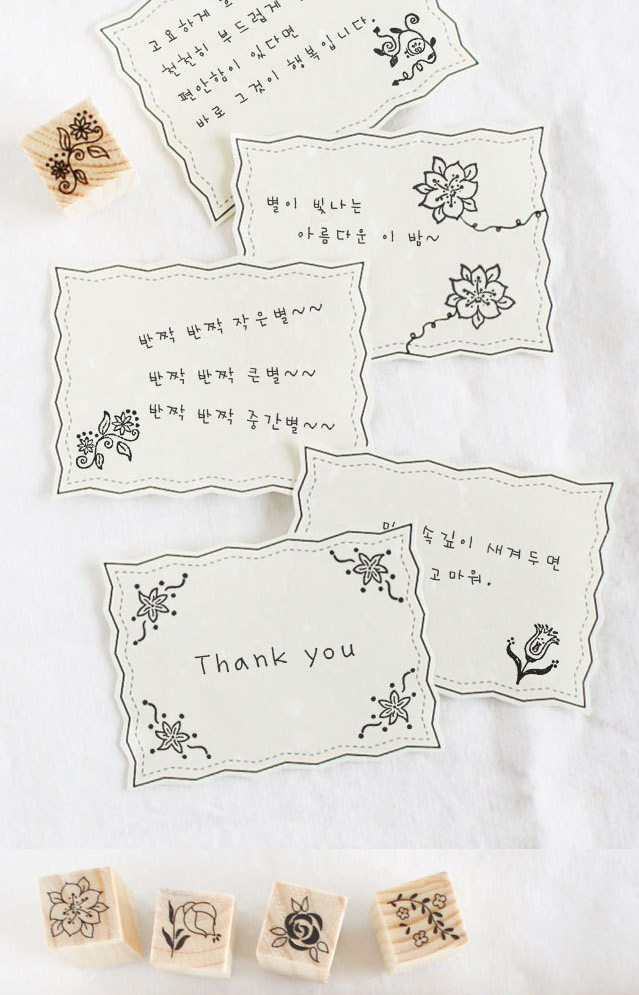 고요하게
천천히 부드럽게
편안함이 있다면
바로 그것이 행복입니다.
별이 빛나는
아름다운 이 밤~
반짝 반짝 작은별~~
반짝 반짝 큰별~~
반짝 반짝 중간별~~
속깊이 새겨두면
고마워.
Thank you